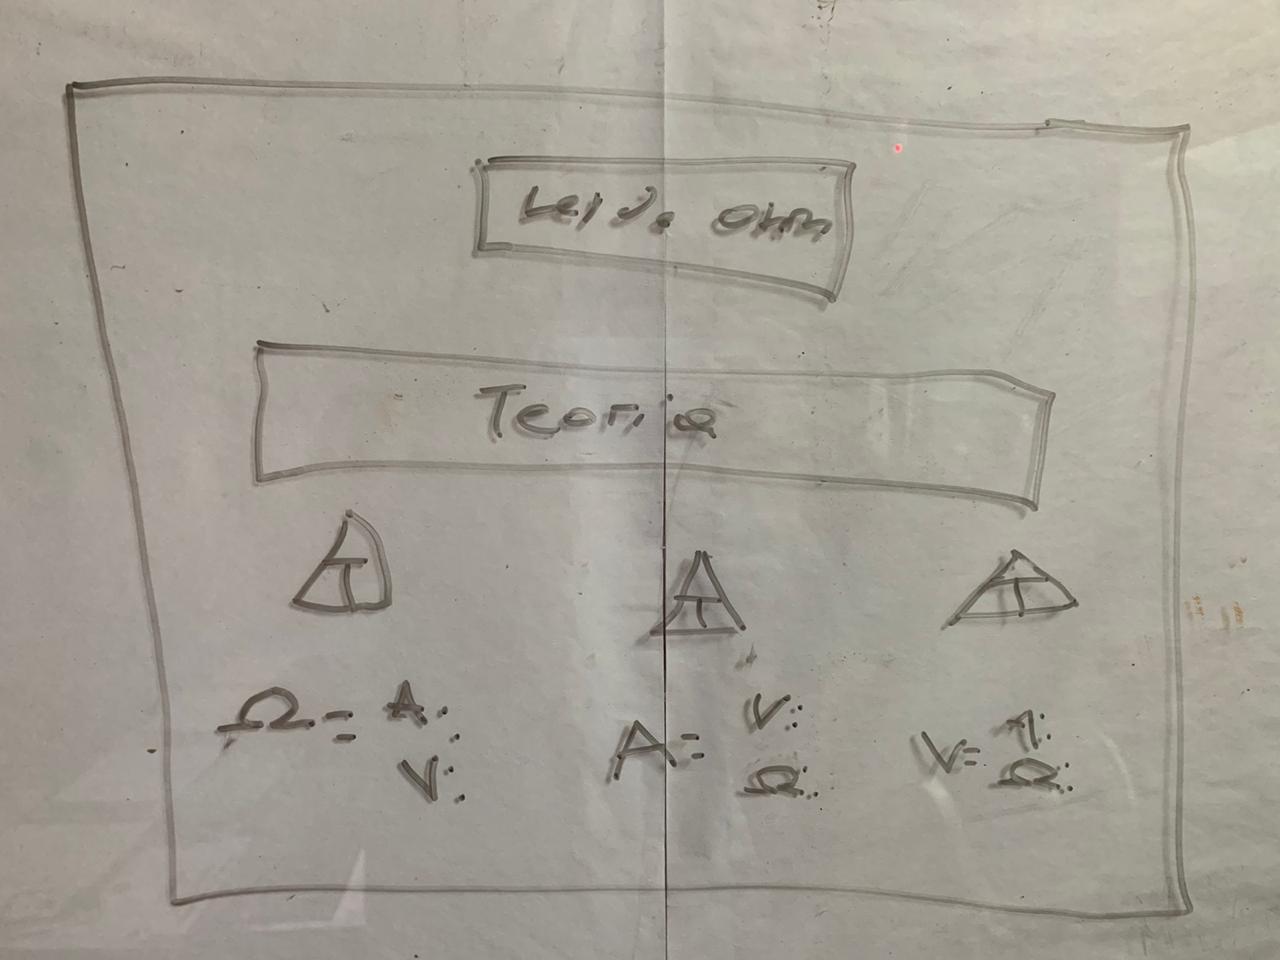 Ley de Ohm
Teoria
Ω = A: V:
A = V: Ω:
V = A: Ω: